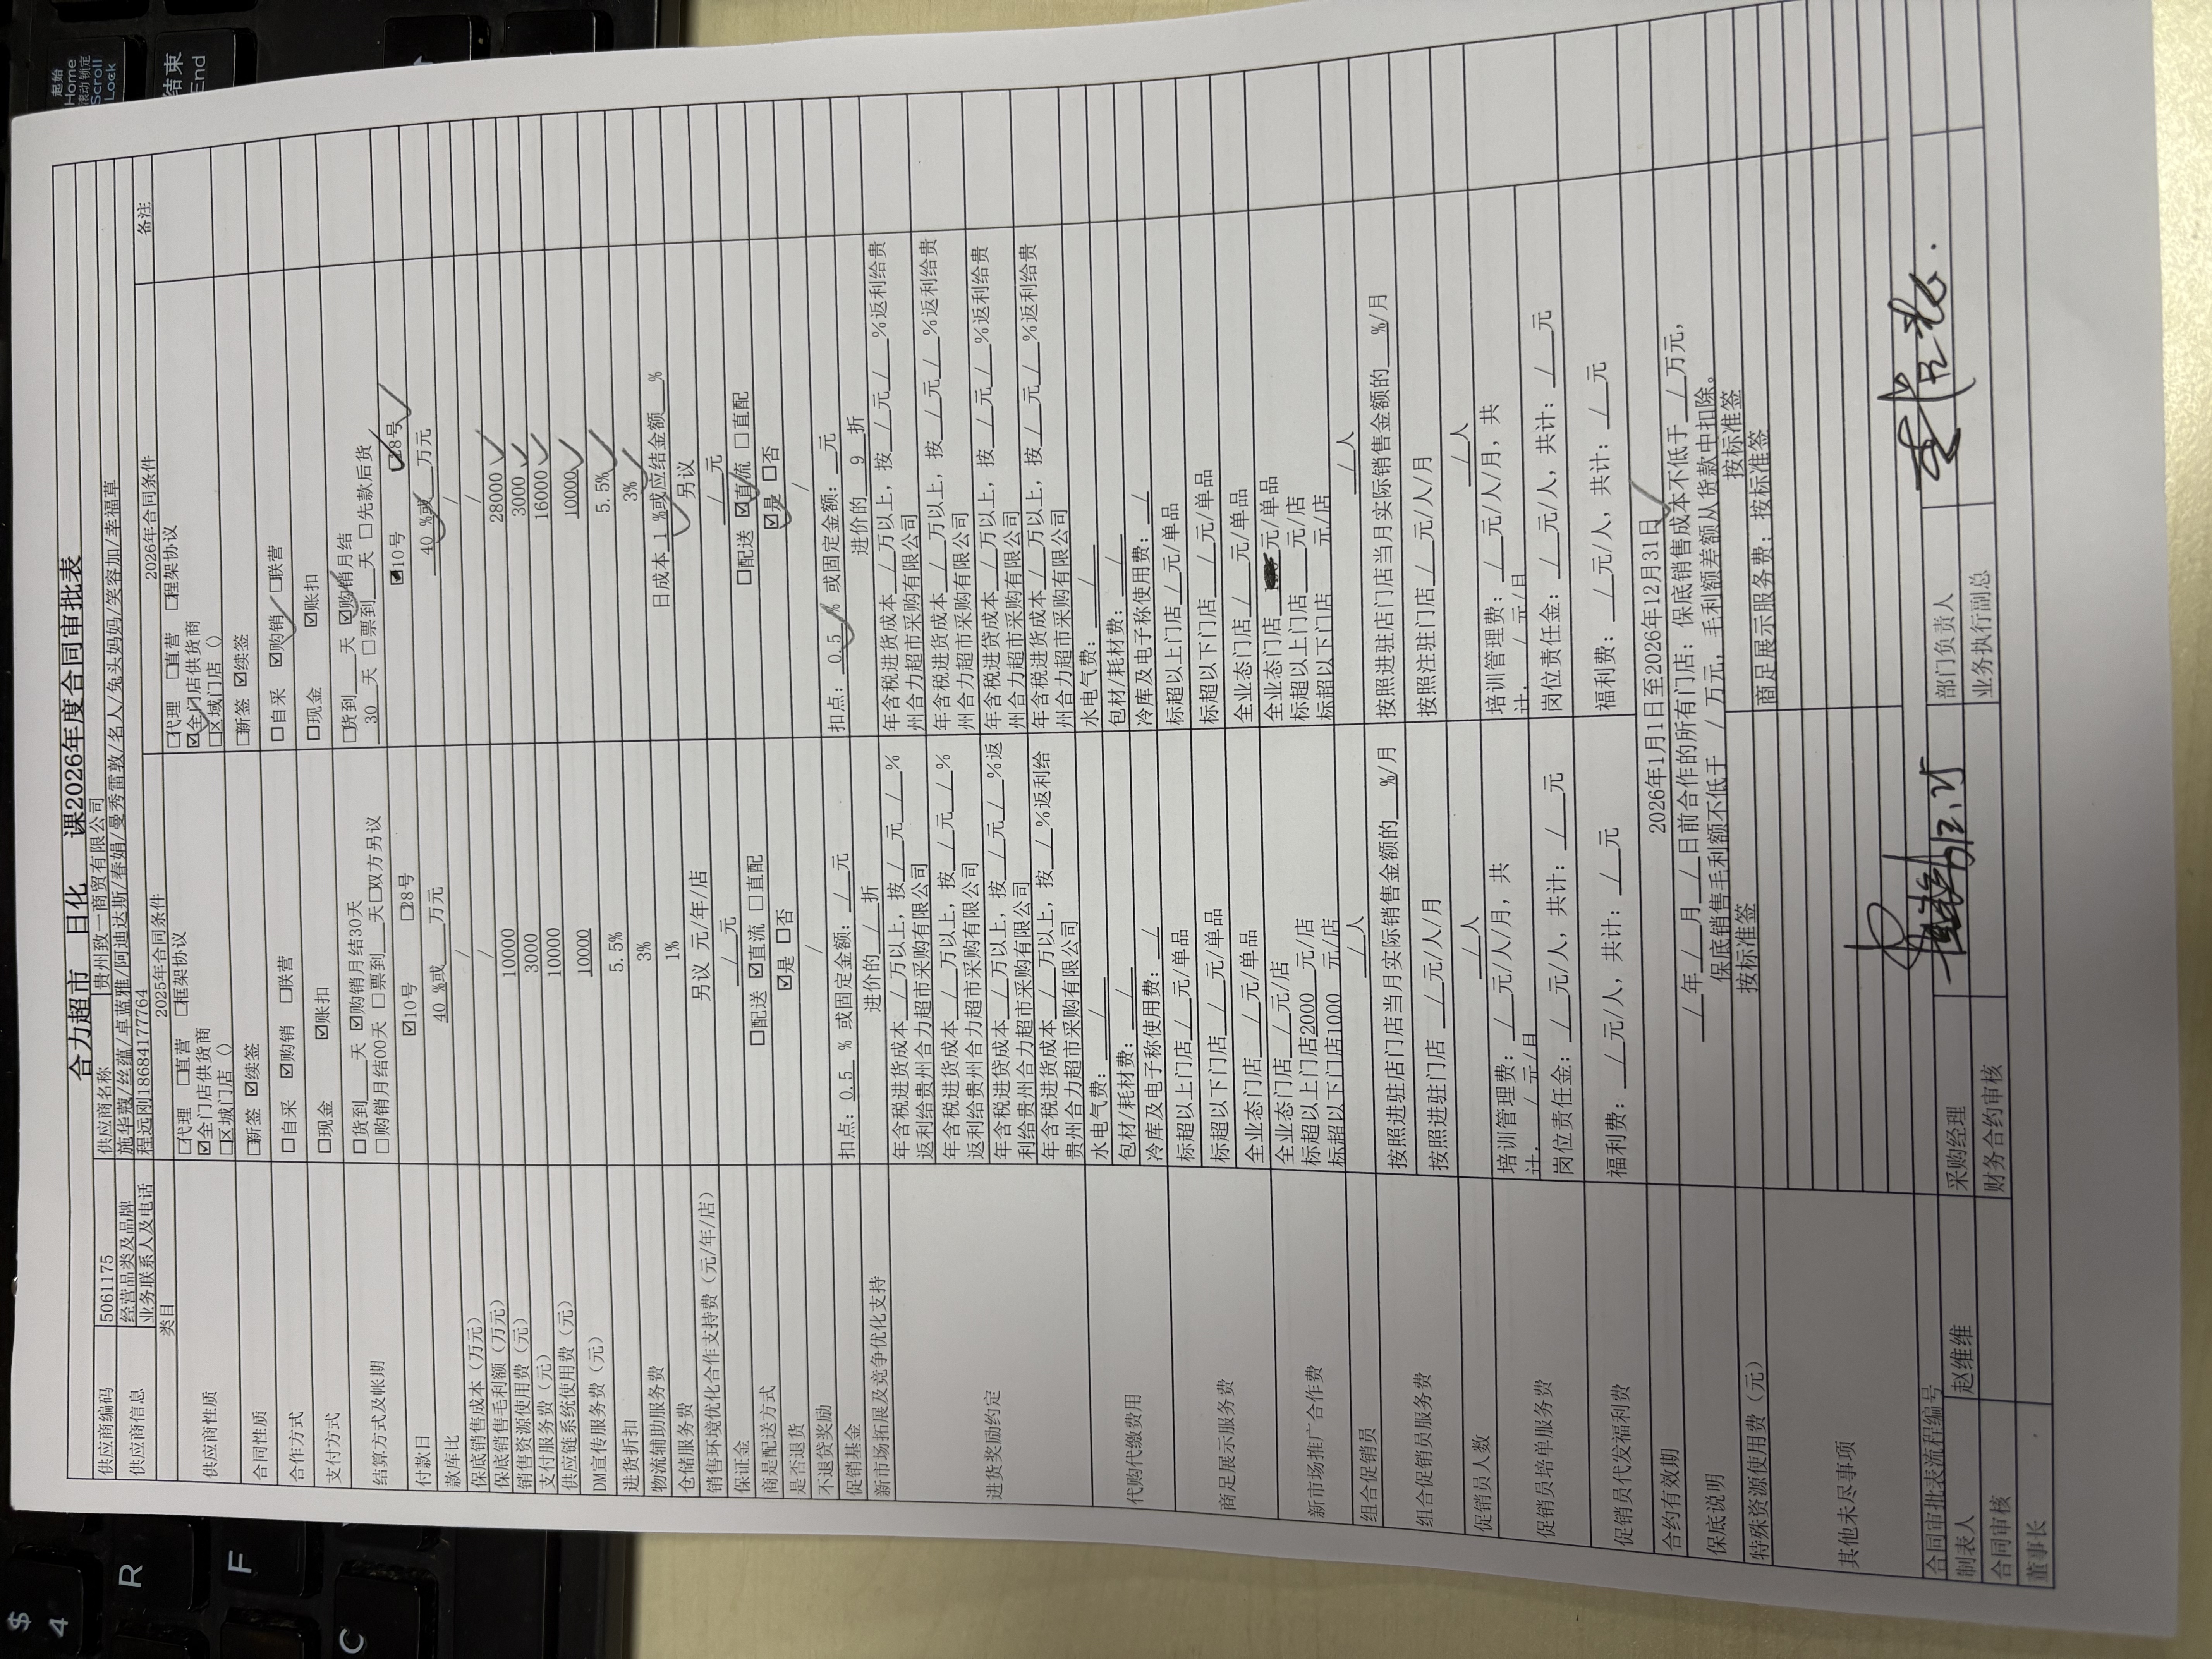 合力超市 日化 课2026年度合同审批表
供应商编码 5061175 供应商名称 贵州致一商贸有限公司
供应商信息 经营品类及品牌 施华蔻/丝蕴/卓蓝雅/阿迪达斯/春娟/曼秀雷敦/名人/兔头妈妈/笑容加/幸福草
业务联系人及电话 程远刚18684177764
类目 2025年合同条件 2026年合同条件 备注
供应商性质 □代理 □直营 □框架协议 □代理 □直营 □程架协议
☑全门店供货商 ☑全门店供货商
□区城门店 () □区域门店 ()
合同性质 □新签 ☑续签 □新签 ☑续签
合作方式 □自采 ☑购销 □联营 □自采 ☑购销 □联营
支付方式 □现金 ☑账扣 □现金 ☑账扣
结算方式及帐期 □货到___天 ☑购销月结30天 □货到___天 ☑购销月结
□购销月结00天 □票到___天□双方另议 30 天 □票到___天 □先款后货
付款日 ☑10号 □28号 ☑10号 ☑28号
款库比 40 %或___万元 40 %或___万元
保底销售成本（万元） / /
保底销售毛利额（万元） / /
销售资源使用费（元） 10000 28000
支付服务费（元） 3000 3000
供应链系统使用费（元） 10000 16000
DM宣传服务费（元） 10000 10000
进货折扣 5.5% 5.5%
物流辅助服务费 3% 3%
仓储服务费 1% 日成本 1 %或应结金额___%
销售环境优化合作支持费（元/年/店） 另议 元/年/店 另议
保证金 / 元 / 元
商是配送方式 □配送 ☑直流 □直配 □配送 ☑直流 □直配
是否退货 ☑是 □否 ☑是 □否
不退贷奖励 / /
促销基金 扣点：0.5 % 或固定金额：/ 元 扣点：0.5 % 或固定金额：___元
新市场拓展及竞争优化支持 进价的 / 折 进价的 9 折
进货奖励约定 年含税进货成本 / 万以上，按 / 元 / % 返利给贵州合力超市采购有限公司 年含税进货成本 / 万以上，按 / 元 / %返利给贵州合力超市采购有限公司
年含税进货成本 / 万以上，按 / 元 / % 返利给贵州合力超市采购有限公司 年含税进货成本 / 万以上，按 / 元 / %返利给贵州合力超市采购有限公司
年含税进贷成本 / 万以上，按 / 元 / %返利给贵州合力超市采购有限公司 年含税进贷成本 / 万以上，按 / 元 / %返利给贵州合力超市采购有限公司
年含税进货成本 / 万以上，按 / %返利给贵州合力超市采购有限公司 年含税进货成本 / 万以上，按 / 元 / %返利给贵州合力超市采购有限公司
代购代缴费用 水电气费： / 水电气费： /
包材/耗材费： / 包材/耗材费： /
冷库及电子称使用费： / 冷库及电子称使用费： /
商足展示服务费 标超以上门店 / 元/单品 标超以上门店 / 元/单品
标超以下门店 / 元/单品 标超以下门店 / 元/单品
全业态门店 / 元/单品 全业态门店 / 元/单品
新市场推广合作费 全业态门店 / 元/店 全业态门店 元/单品
标超以上门店2000 元/店 标超以上门店___元/店
标超以下门店1000 元/店 标超以下门店 元/店
组合促销员 / 人 / 人
组合促销员服务费 按照进驻店门店当月实际销售金额的___%/月 按照进驻店门店当月实际销售金额的___%/月
按照进驻门店 / 元/人/月 按照注驻门店 / 元/人/月
促销员人数 / 人 / 人
促销员培单服务费 培训管理费： / 元/人/月，共计. / 元/月 培训管理费： / 元/人/月，共计. / 元/月
岗位责任金： / 元/人，共计： / 元 岗位责任金： / 元/人，共计： / 元
促销员代发福利费 福利费： / 元/人，共计： / 元 福利费： / 元/人，共计： / 元
合约有效期 2026年1月1日至2026年12月31日
保底说明 / 年 / 月 / 日前合作的所有门店：保底销售成本不低于 / 万元，
保底销售毛利额不低于 / 万元，毛利额差额从货款中扣除。
特殊资源使用费（元） 按标准签 按标准签
其他未尽事项 商足展示服务费：按标准签
合同审批表流程编号
制表人 赵维维 采购经理 部门负责人
合同审核 财务合约审核 业务执行副总
董事长